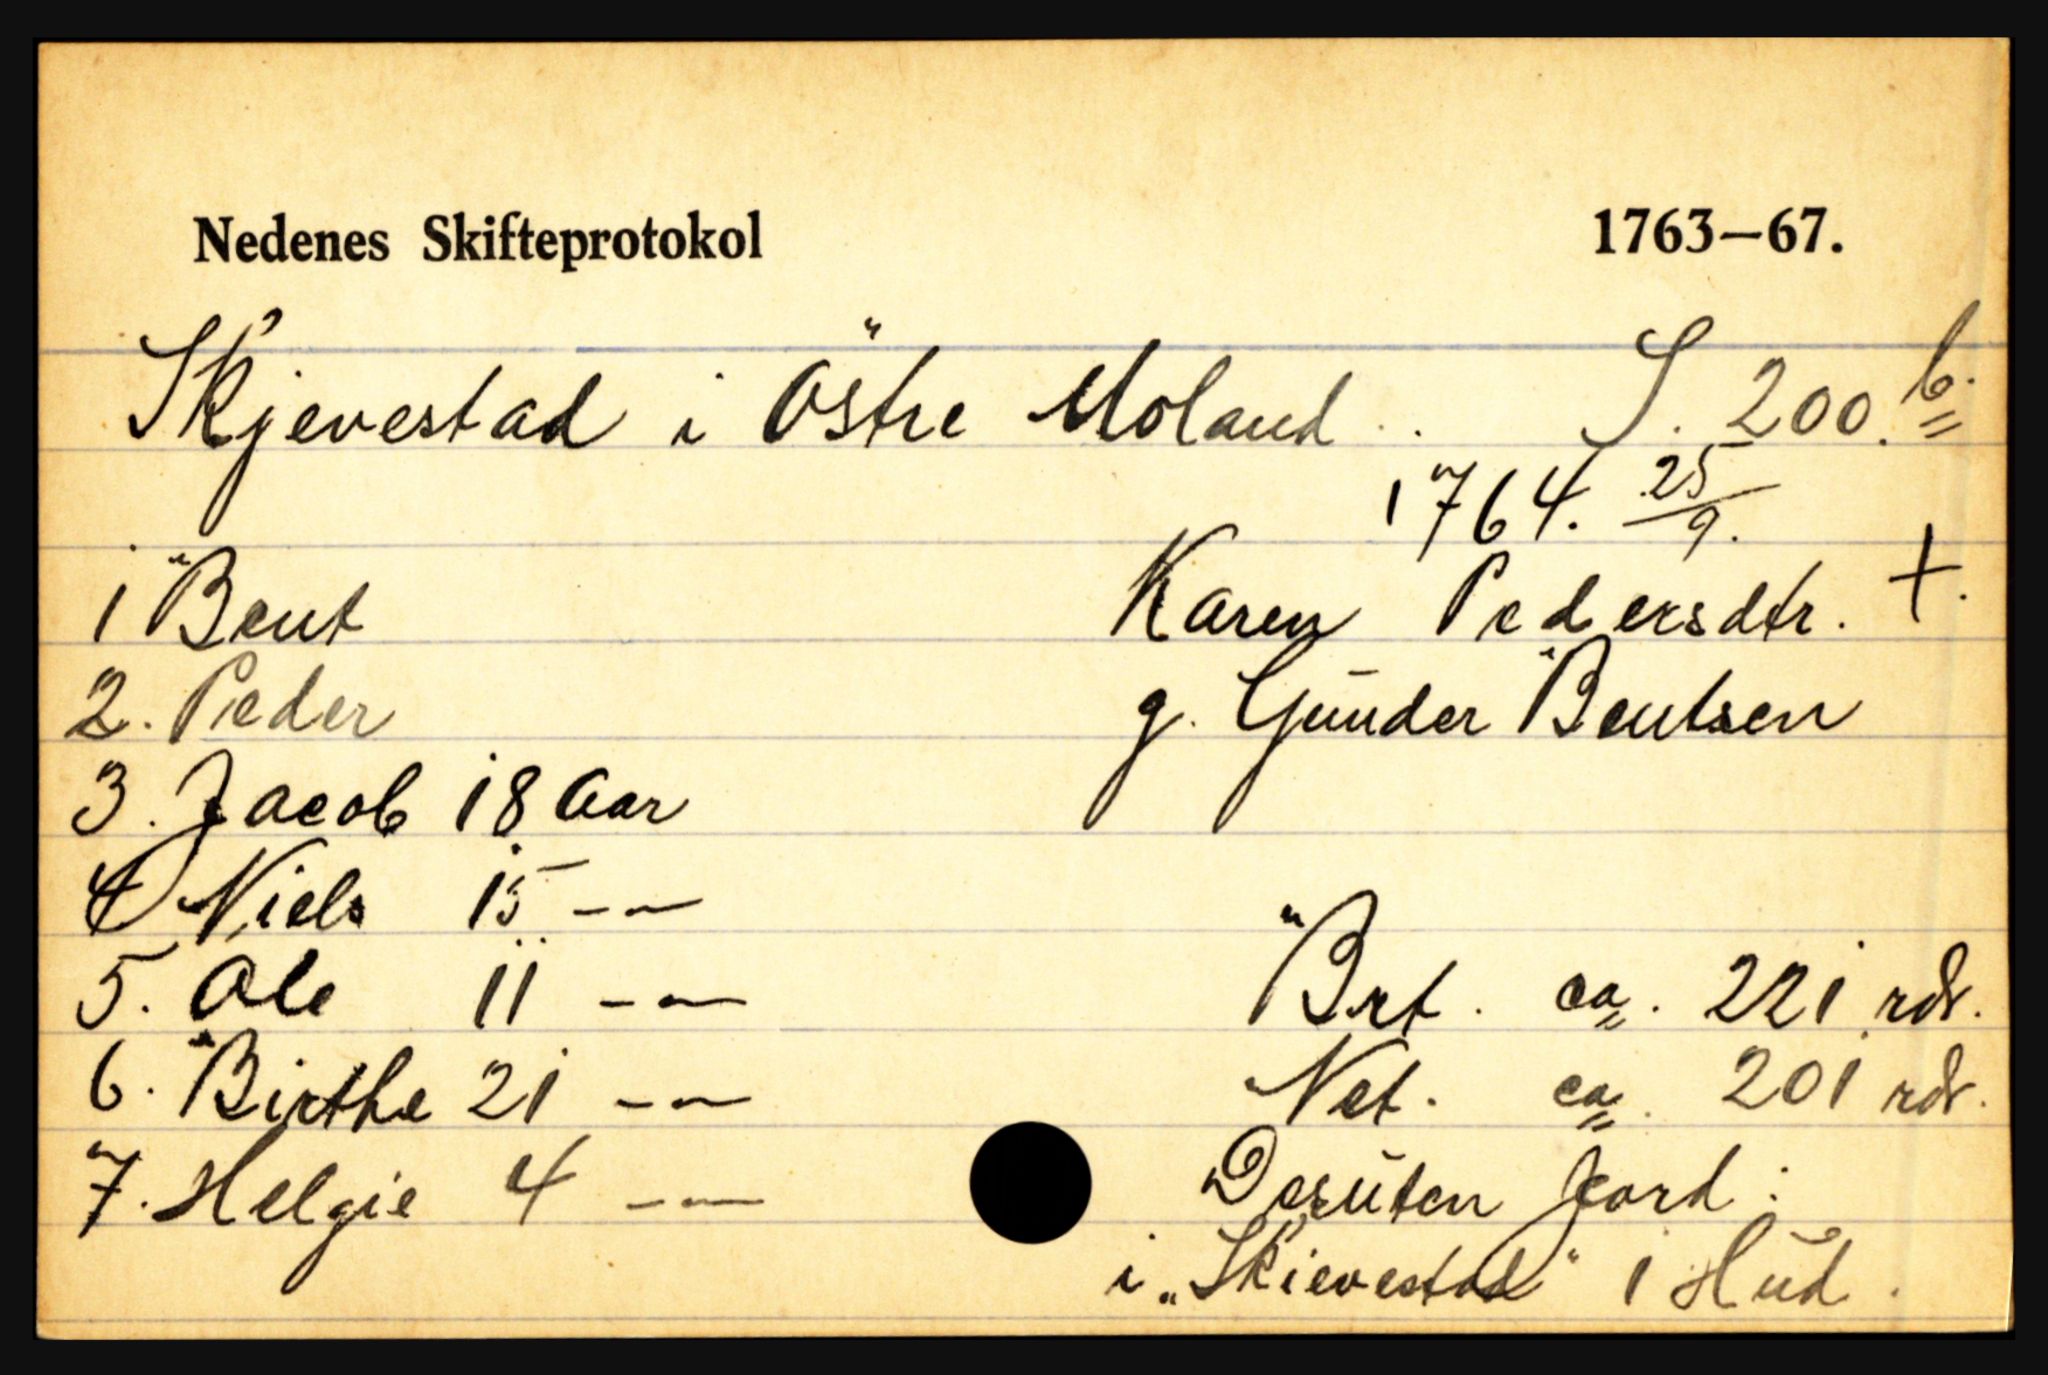 Nedenes Skifteprotokol 1763—67.
Skjevestad i Östre Moland. S. 200.b.
1764. 25/9.
1 Bent
Karen Pedersdtr. +.
2. Peder
g. Gunder Bentsen
3. Jacob 18 Aar
4 Niels 15 -"-
5. Ole 11 -"-
Brt. ca. 221 rdr.
6. Birthe 21 -"-
Net. ca. 201 rdr.
7. Helgie 4 -"-
Desuten Jord:
i „Skievestad" 1 Hud.